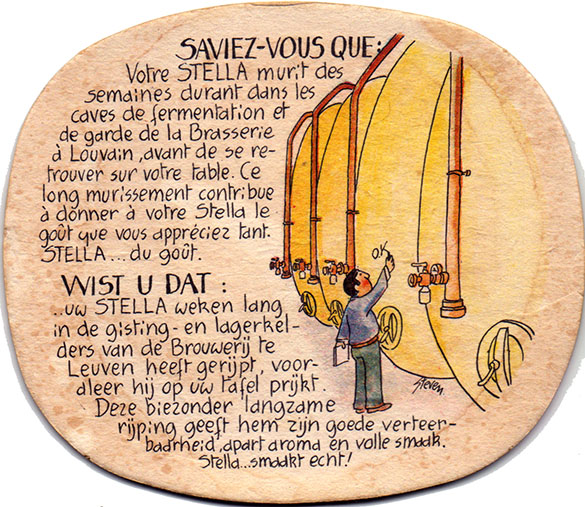 SAVIEZ-VOUS QUE:
Votre STELLA murit des
semaines durant dans les
caves de fermentation et
de garde de la Brasserie
à Louvain, avant de se re-
trouver sur votre table. Ce
long murissement contribue
à donner à votre Stella le
goût que vous appréciez tant.
STELLA... du goût.
WIST U DAT :
...uw STELLA weken lang
in de gisting- en lagerkel-
ders van de Brouwerij te
Leuven heeft gerijpt, voor-
dleer hij op uw tafel prijkt.
Deze biezonder langzame
rijping geeft hem zijn goede verteer-
baarheid, apart aroma en volle smaak.
Stella...smaakt echt!
O.K
Steven